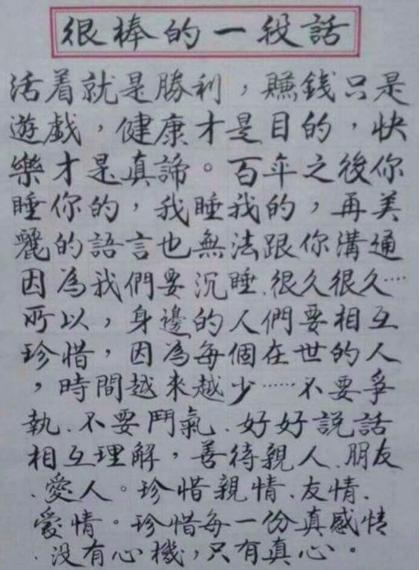 很棒的一段話
活着就是勝利，賺錢只是
遊戲，健康才是目的，快
樂才是真諦。百年之後你
睡你的，我睡我的，再美
麗的語言也無法跟你溝通
因為我們要沉睡、很久很久…
所以，身邊的人們要相互
珍惜，因為每個在世的人
，時間越來越少……不要爭
執、不要鬥氣、好好說話
相互理解，善待親人、朋友
、愛人。珍惜親情、友情、
愛情。珍惜每一份真感情
、沒有心機，只有真心。